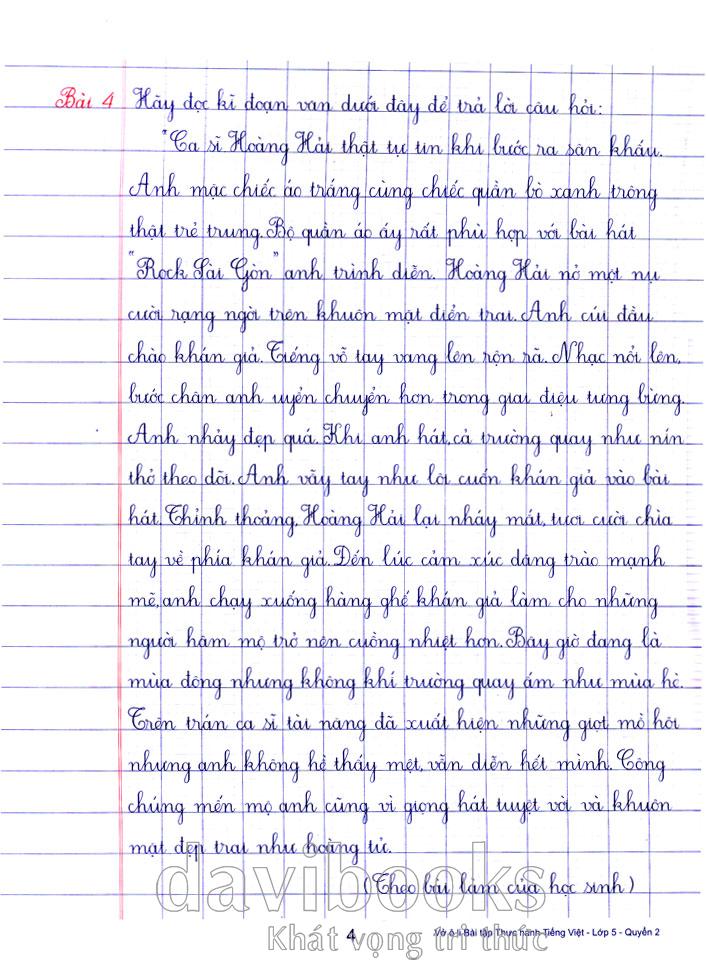 Bài 4 Hãy đọc kĩ đoạn văn dưới đây để trả lời câu hỏi:
"Ca sĩ Hoàng Hải thật tự tin khi bước ra sân khấu.
Anh mặc chiếc áo trắng cùng chiếc quần bò xanh trông
thật trẻ trung. Bộ quần áo ấy rất phù hợp với bài hát
"Rock Sài Gòn" anh trình diễn. Hoàng Hải nở một nụ
cười rạng ngời trên khuôn mặt điển trai. Anh cúi đầu
chào khán giả. Tiếng vỗ tay vang lên rộn rã. Nhạc nổi lên,
bước chân anh uyển chuyển hơn trong giai điệu tưng bừng.
Anh nhảy đẹp quá. Khi anh hát, cả trường quay như nín
thở theo dõi. Anh vẫy tay như lôi cuốn khán giả vào bài
hát. Thỉnh thoảng, Hoàng Hải lại nháy mắt, tươi cười chìa
tay về phía khán giả. Đến lúc cảm xúc dâng trào mạnh
mẽ, anh chạy xuống hàng ghế khán giả làm cho những
người hâm mộ trở nên cuồng nhiệt hơn. Bây giờ đang là
mùa đông nhưng không khí trường quay ấm như mùa hè.
Trên trán ca sĩ tài năng đã xuất hiện những giọt mồ hôi
nhưng anh không hề thấy mệt, vẫn diễn hết mình. Công
chúng mến mộ anh cũng vì giọng hát tuyệt vời và khuôn
mặt đẹp trai như hoàng tử.
(Theo bài làm của học sinh)
davibooks
Khát vọng tri thức
4 Vở ô li Bài tập Thực hành Tiếng Việt - Lớp 5 - Quyển 2